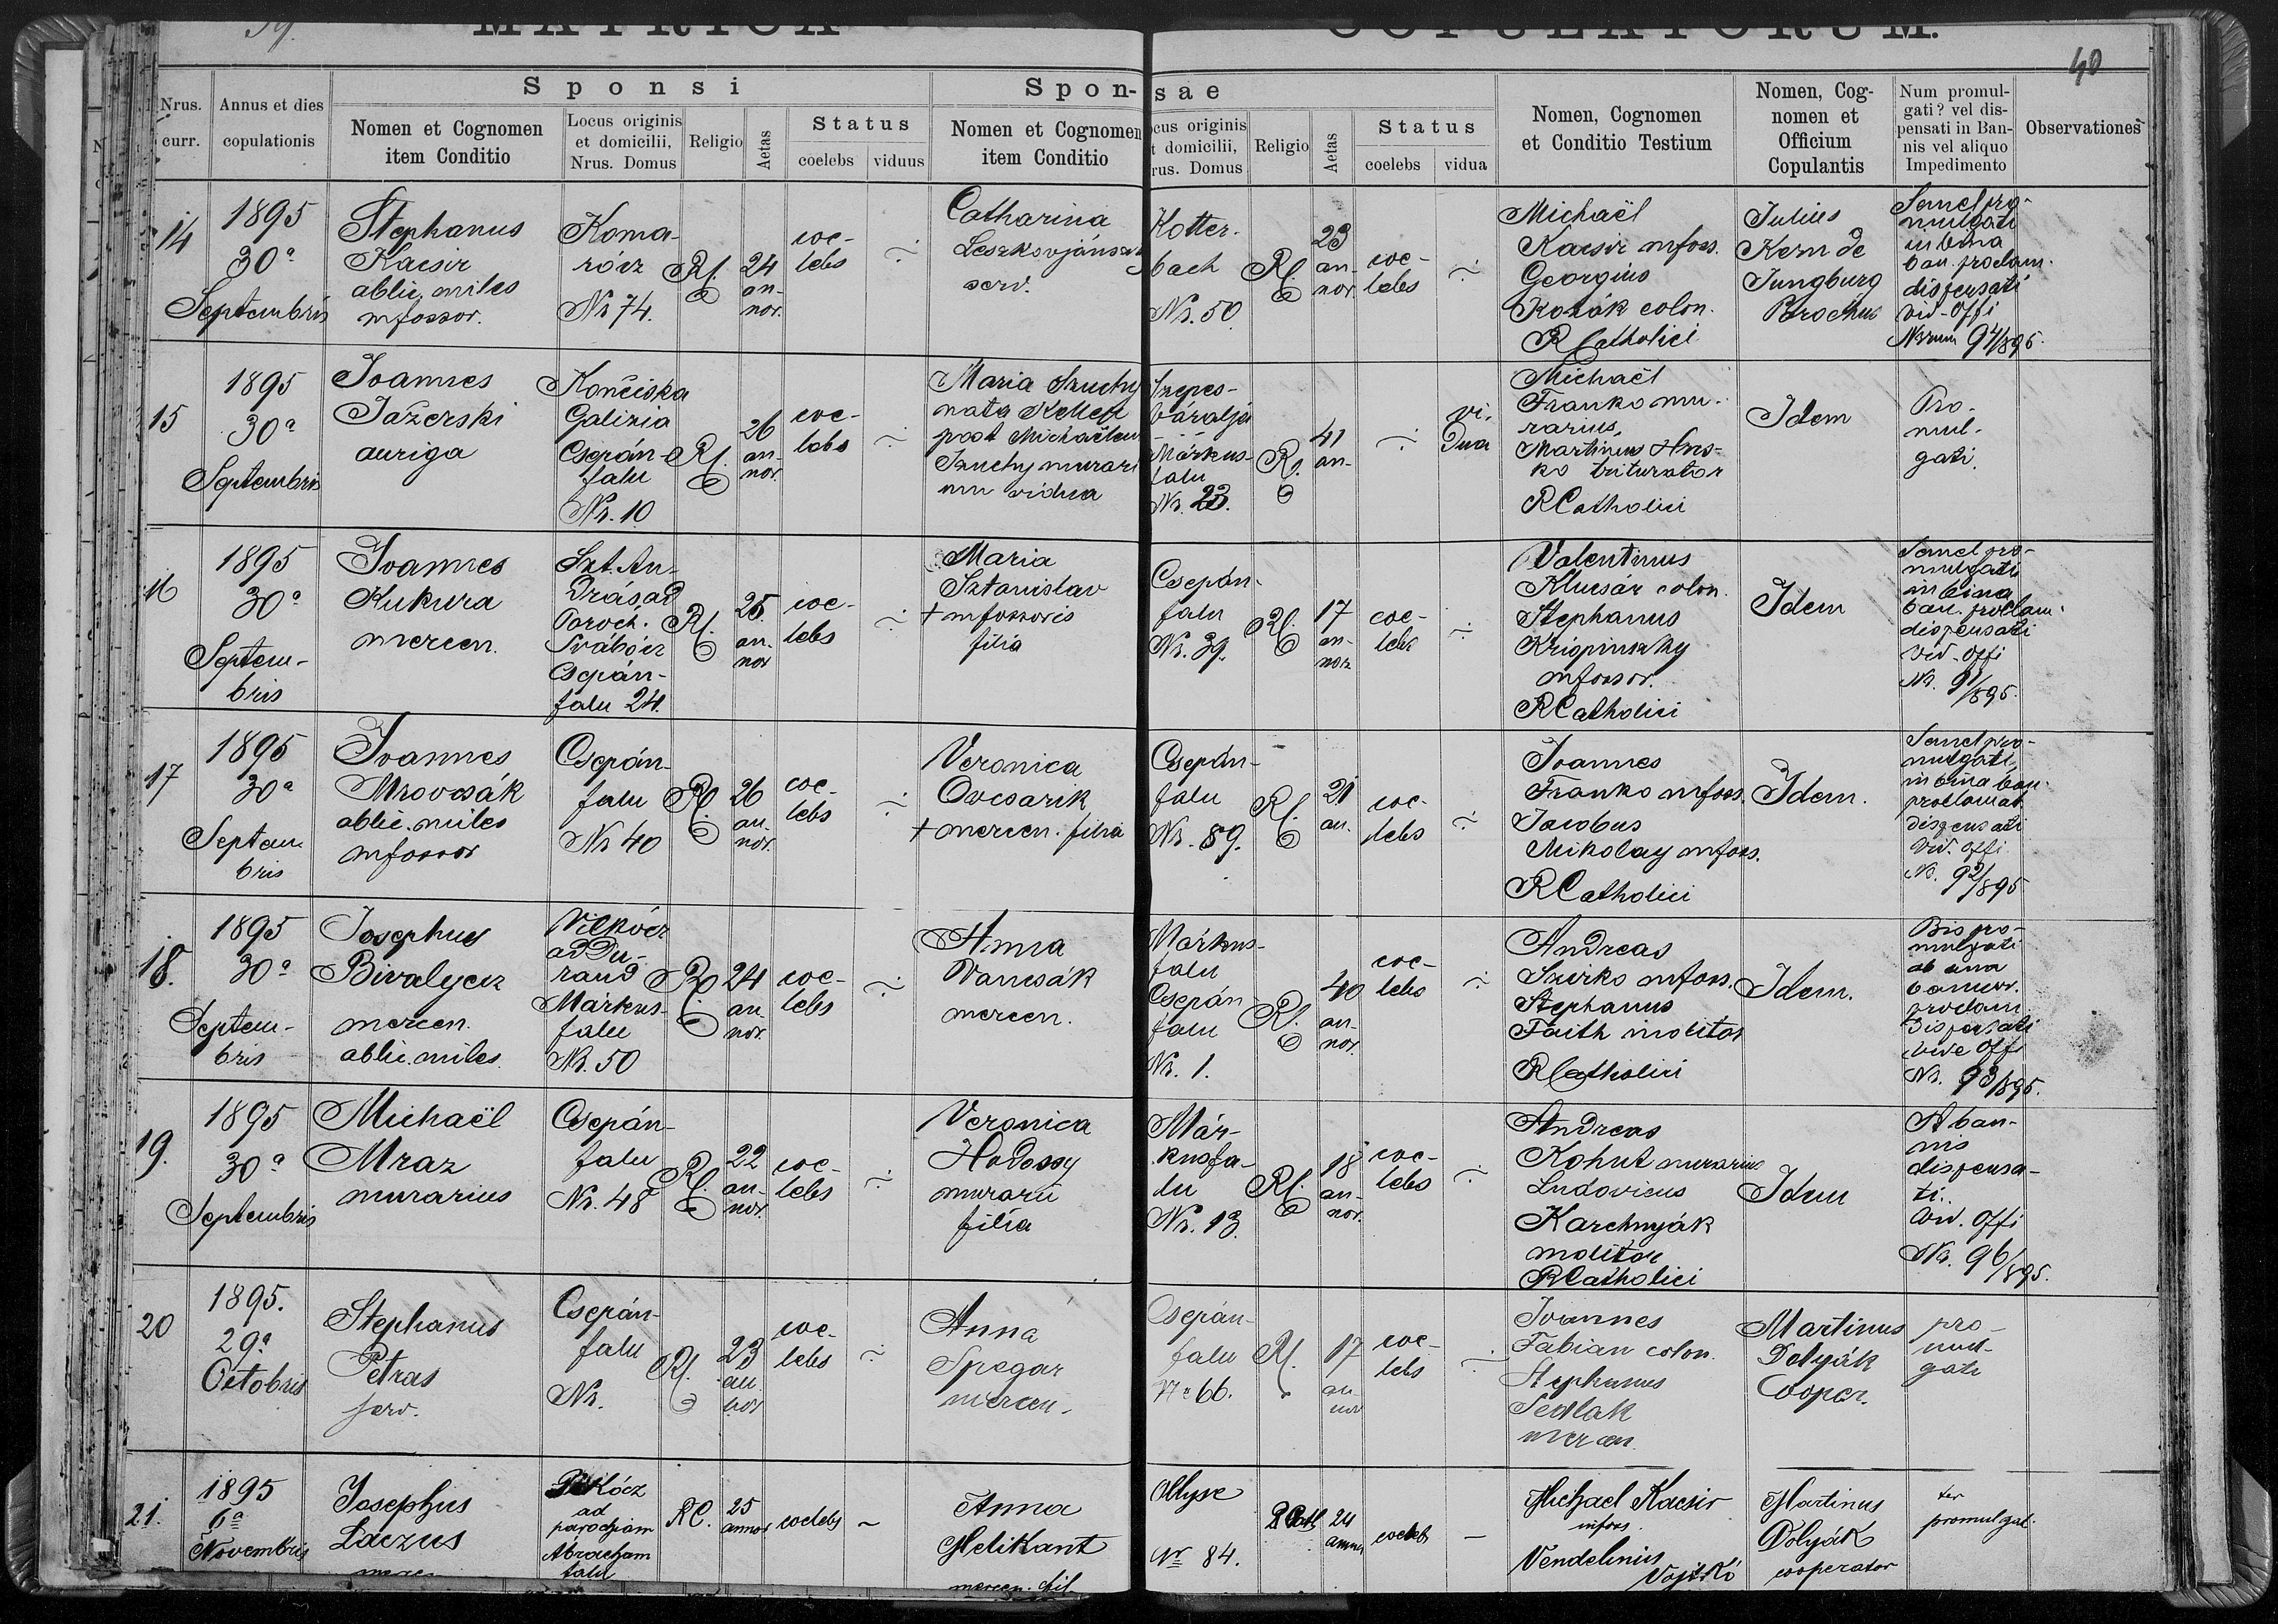 39.
MATRICA
COPULATORUM.
40
Nrus. curr.
Annus et dies copulationis
Sponsi
Nomen et Cognomen item Conditio
Locus originis et domicilii, Nrus. Domus
Religio
Aetas
Status
coelebs
viduus
Spon-
sae
Nomen et Cognomen item Conditio
ocus originis t domicilii, rus. Domus
Religio
Aetas
Status
coelebs
vidua
Nomen, Cognomen et Conditio Testium
Nomen, Cog-nomen et Officium Copulantis
Num promul-gati? vel dis-pensati in Ban-nis vel aliquo Impedimento
Observationes
14
1895
30a
Septembris
Stephanus
Kacsir
ablic. miles
mfossor.
Koma-
rócz
Nr 74.
RC.
24
an-
nor.
coe-
lebs
Catharina
Leszkovjánszky
serv.
Kotter-
bach
Nr. 50
RC.
23
an-
nor.
coe-
lebs
Michaël
Kacsir mfoss.
Georgius
Kozák colon.
RCatholici
Julius
Kern de
Jungburg
Parochus
Semel pro-
mulgati
in bina
ban. proclam.
dispensati
vid. Offi
Nrum 94/895.
15
1895
30a
Septembris
Joannes
Jažerski
auriga
Končiska
Galizia
Csepán-
falu
Nr. 10
RC.
26
an-
nor.
coe-
lebs
Maria Szuchy
nata Keller
post Michaëlem
Szuchy murari
um vidua
Szepes-
váralja
Márkus-
falu
Nr. 23.
RC.
41
an-
vi-
dua
Michaël
Franko mu-
rarius,
Martinus Hus-
ko triturator
RCatholici
Idem
Pro-
mul-
gati.
16
1895
30a
Septem-
bris
Joannes
Kukura
mercen.
Szt. An-
drásad
Paroch.
Svábócz
Csepán-
falu 24.
RC.
25.
an-
nor
coe-
lebs
Maria
Sztanislav
+ mfossoris
filia
Csepán-
falu
Nr. 39.
RC.
17
an-
nor.
coe-
lebs
Valentinus
Klucsár colon.
Stephanus
Krispinszky
mfossor.
RCatholici
Idem
Semel pro-
mulgati
in bina
ban. proclam.
dispensati
vid. Offi
Nr. 91/895.
17
1895
30a
Septem
bris
Joannes
Mrovcsák
ablic. miles
mfossor
Csepán-
falu
Nr 40
RC.
26
an-
nor.
coe-
lebs
Veronica
Ovcsarik
+ mercen. filia
Csepán-
falu
Nr. 89.
RC.
21
an.
coe-
lebs
Joannes
Franko mfoss.
Jacobus
Mikolay mfoss.
RCatholici
Idem.
Semel pro-
mulgati,
in bina ban.
proclamat.
dispensati
vid. offi
Nr. 92/895
18.
1895
30a
Septem-
bris
Josephus
Bivalyecz
mercen.
ablic. miles.
Vilkócz
ad Du-
rand
Márkus-
falu
Nr. 50
RC.
24
an-
nor.
coe-
lebs
Anna
Vancsák
mercen.
Márkus-
falu
Csepán-
falu
Nr. 1.
RC.
40
an-
nor.
coe-
lebs
Andreas
Szirko mfoss.
Stephanus
Faith molitor
RCatholici
Idem.
Bis pro-
mulgati
ab una
bannor.
proclam
dispensati
vide Offi
Nr. 93/895.
19.
1895
30a
Septembris
Michaël
Mraz
murarius
Csepán-
falu
Nr. 48
RC.
22
an-
nor.
coe-
lebs
Veronica
Hodossy
murarii
filia
Már-
kusfa-
lu
Nr. 13.
RC.
18
an-
nor.
coe-
lebs
Andreas
Kohut murarius
Ludovicus
Karchnyák
molitor
RCatholici
Idem
A ban-
nis
dispensa-
ti.
vid. Offi
Nr. 96/895.
20
1895.
29a
Octobris
Stephanus
Petras
serv.
Csepán-
falu
Nr.
RC.
23
an
nor
coe-
lebs
Anna
Spegar
mercen.
Csepán-
falu
Nr 66.
RC.
17
an-
nor
coe-
lebs
Joannes
Fabian colon.
Stephanus
Sedlak
mercen.
Martinus
Dolyák
Cooper.
pro-
mul-
gati
21.
1895
6a
Novembris
Josephus
Laczus
mercen
ad
parochiam
Abraham
falu
RC.
25
annor
coelebs
Anna
Melikant
mercen. fil
Nr 84.
RCath
24
annor
coeleb
Michael Kacsir
mfoss.
Vendelinus
Vojtkó
Martinus
Dolyák
cooperator
ter
promulgat.